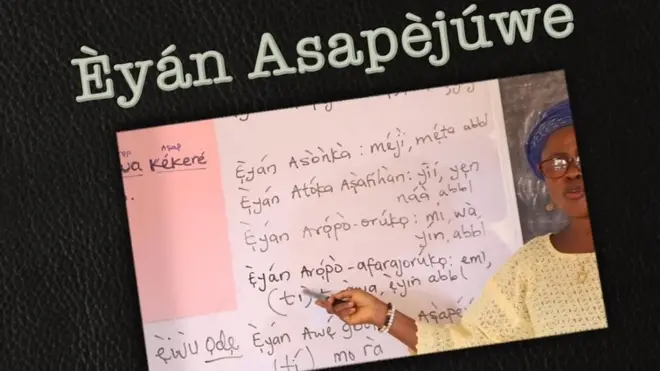 Èyán Asapèjúwe
Asap
kékeré
Ẹ̀yán Asòǹkà : méjì, mẹ́ta abbl
Ẹ̀yán Atọ́ka Aṣàfihàn: yìí, yẹn
náà abbl
Ẹ̀yán Arọ́pò-orúkọ : mi, wà,
yín, abbl
Ẹ̀yán Arọ́pò-afarajorúkọ: emi,
(ti) ẹ̀yin abbl
ẹ̀wù Ọdẹ Ẹ̀yán Awẹ́ Aṣapè
(tí) mo rà